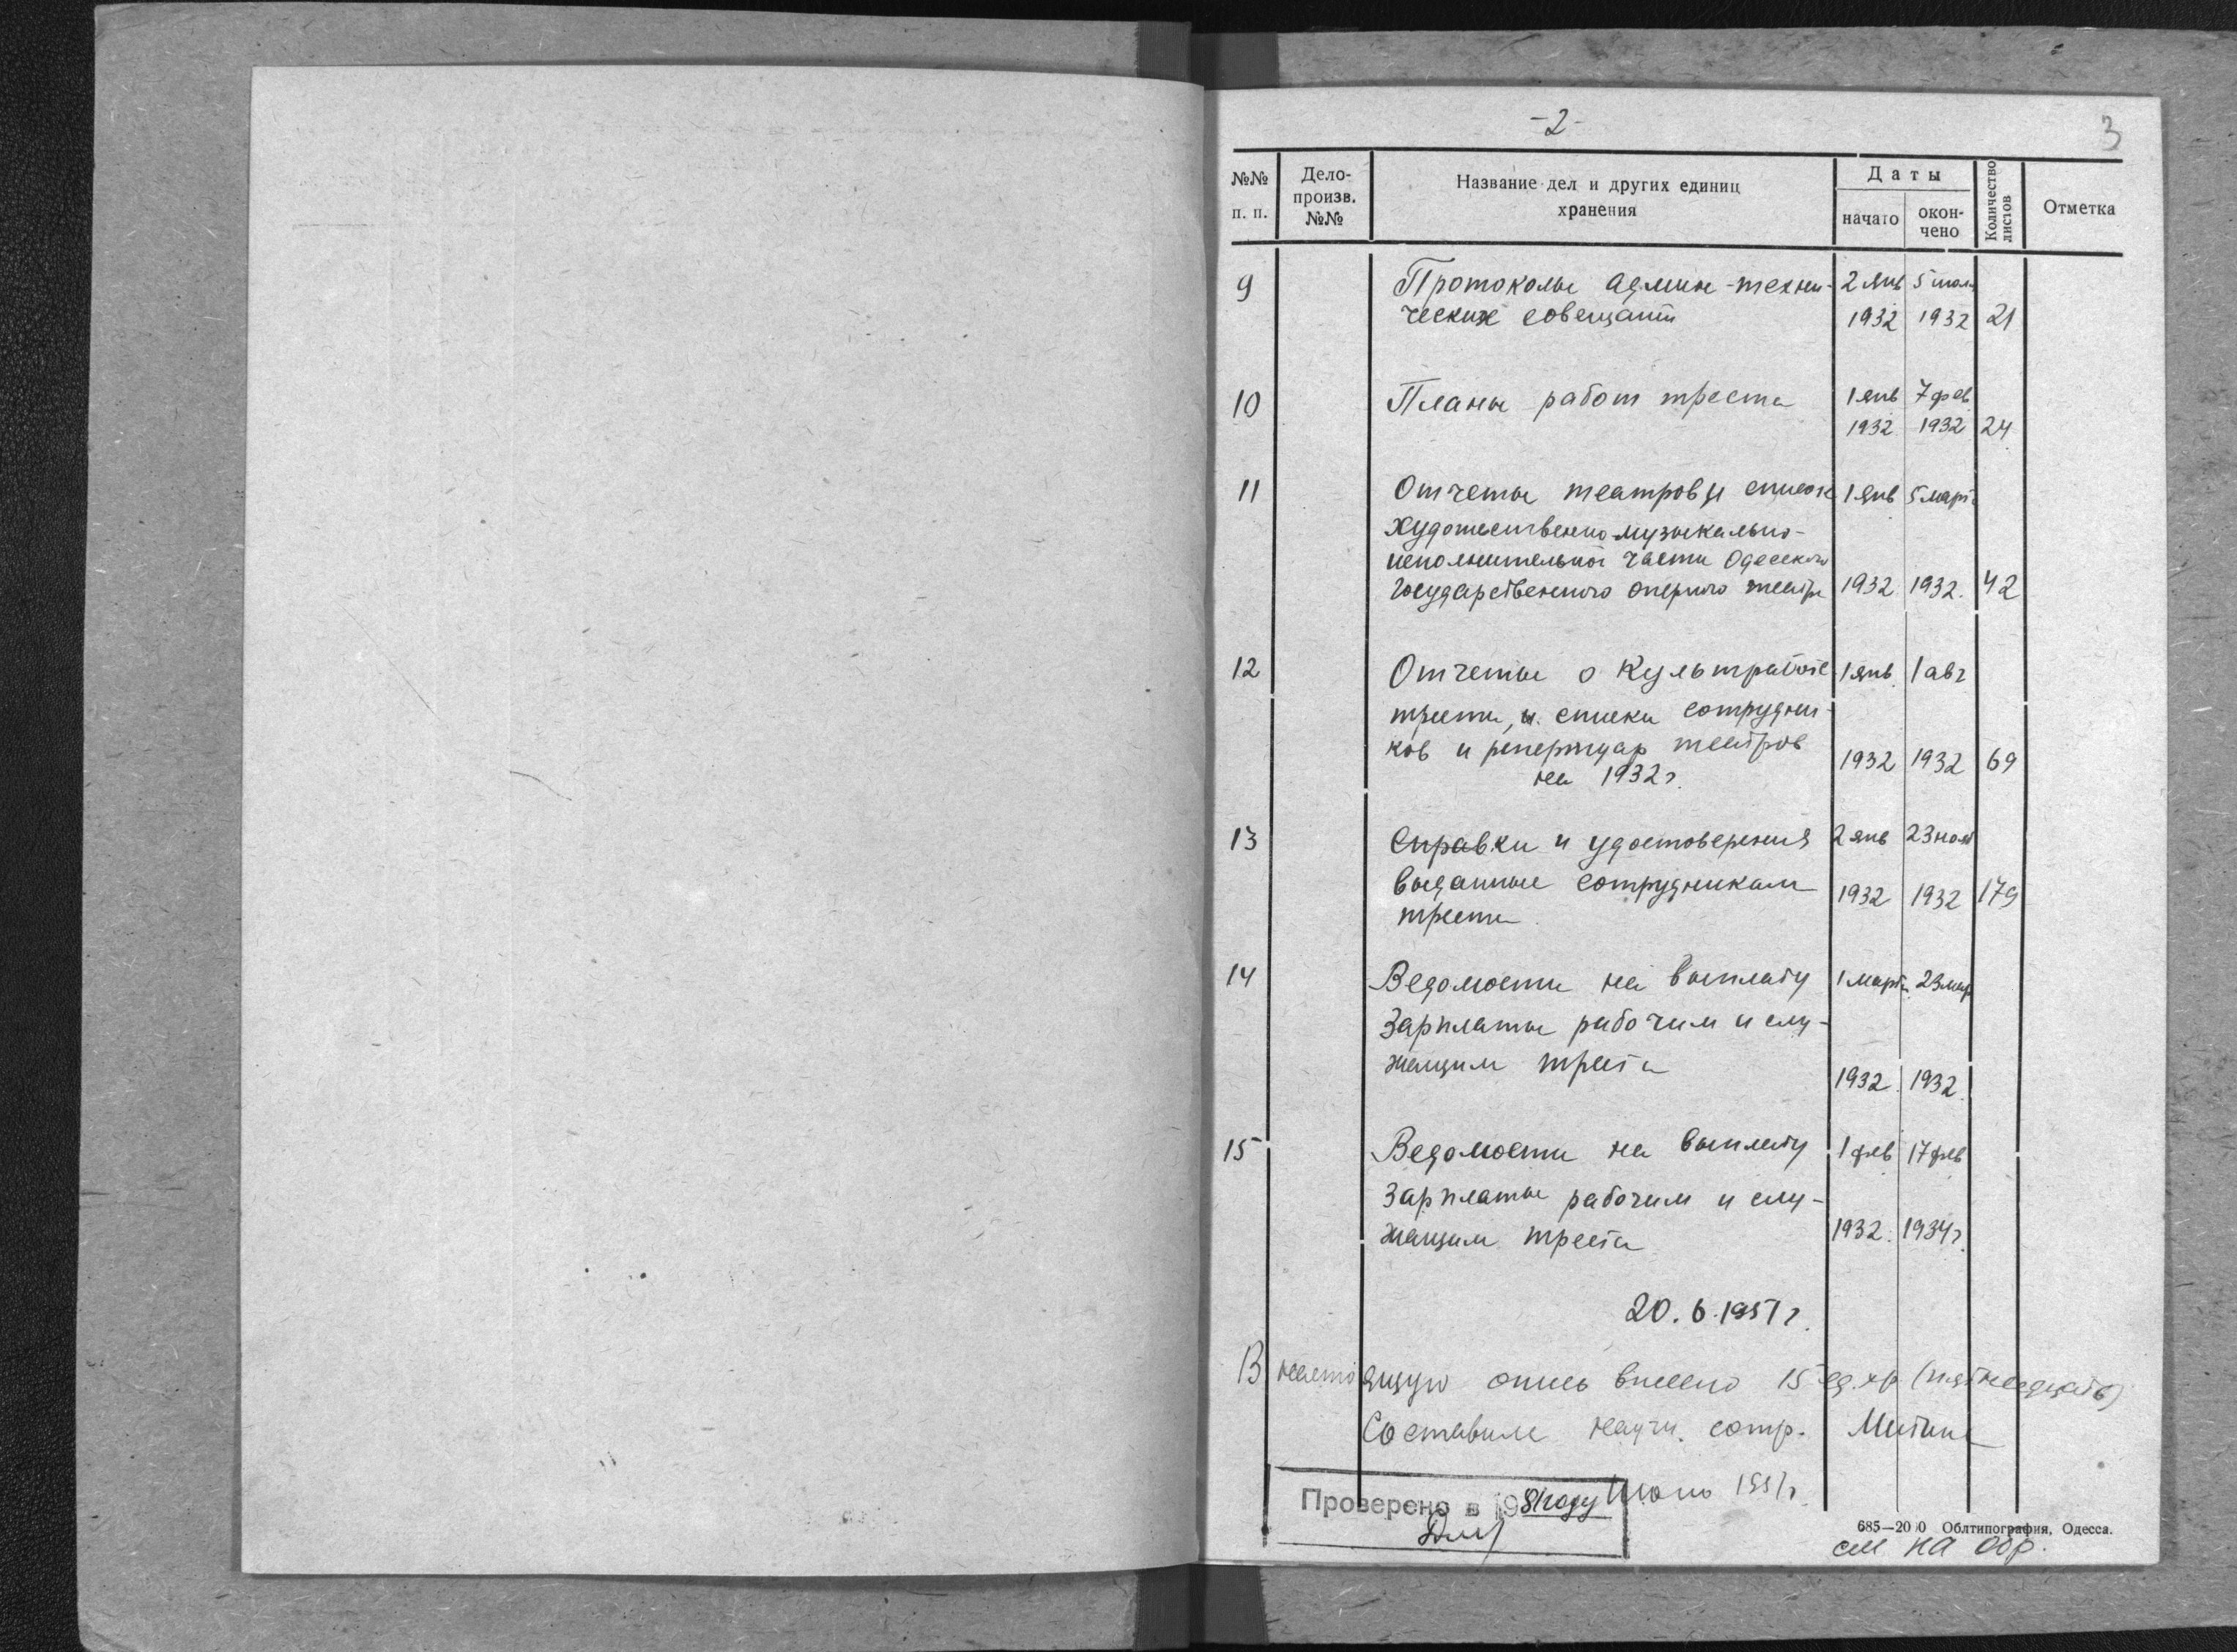 -2-
3
№№ п. п. Дело-произв. №№ Название дел и других единиц хранения Даты начато окончено Количество листов Отметка
9 Протоколы админ-техни- 2 янв 5 мая
ческих совещаний 1932 1932 21
10 Планы работ треста 1 янв 7 фев
1932 1932 24
11 Отчеты театров и список 1 янв 5 марта
художественно-музыкально-
исполнительной части Одесского
Государственного оперного театра 1932 1932. 42
12 Отчеты о культработе 1 янв. 1 авг
треста, и списки сотрудни-
ков и репертуар театров 1932 1932 69
на 1932 г.
13 Справки и удостоверения 2 янв 23 нояб
выданные сотрудникам 1932 1932 179
треста
14 Ведомости на выплату 1 марта 23 мар
зарплаты рабочим и слу-
жащим треста 1932. 1932.
15 Ведомости на выплату 1 фев 17 фев
зарплаты рабочим и слу-
жащим треста 1932. 1934 г.
20.6.1951 г.
В настоящую опись внесено 15 ед.хр (пятнадцать)
Составила научн. сотр. Митина
Июнь 1951 г.
Проверено в 1981 году
685—2000 Облтипография, Одесса.
см на обр.